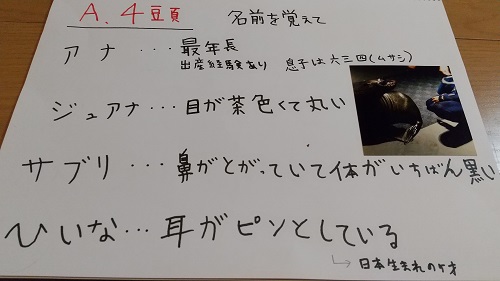 A. 4頭 名前を覚えて
アナ・・・最年長
出産経験あり 息子は六三四(ムサシ)
ジュアナ・・・目が茶色くて丸い
サブリ・・・鼻がとがっていて体がいちばん黒い
ひいな・・・耳がピンとしている
→日本生まれの